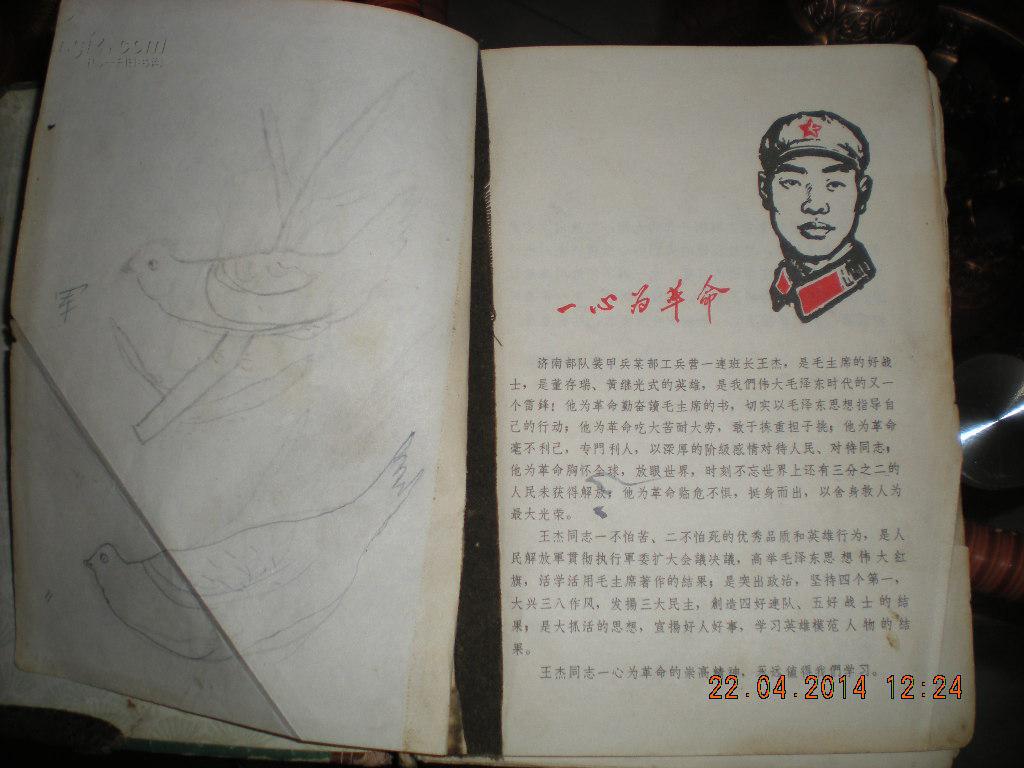 军
一心为革命
济南部队装甲兵某部工兵营一連班长王杰，是毛主席的好战
士，是董存瑞、黄继光式的英雄，是我們伟大毛泽东时代的又一
个雷鋒！他为革命勤奋讀毛主席的书，切实以毛泽东思想指导自
己的行动；他为革命吃大苦耐大劳，敢于拣重担子挑；他为革命
毫不利己，专門利人，以深厚的阶级感情对待人民、对待同志；
他为革命胸怀全球，放眼世界，时刻不忘世界上还有三分之二的
人民未获得解放；他为革命临危不惧，挺身而出，以舍身救人为
最大光荣。
王杰同志一不怕苦、二不怕死的优秀品质和英雄行为，是人
民解放軍貫彻执行軍委扩大会議决議，高举毛泽东思想伟大红
旗，活学活用毛主席著作的结果；是突出政治，坚持四个第一，
大兴三八作风，发揚三大民主，創造四好連队、五好战士的结
果；是大抓活的思想，宣揚好人好事，学习英雄模范人物的结
果。
王杰同志一心为革命的崇高精神，永远值得我們学习。
22.04.2014 12:24